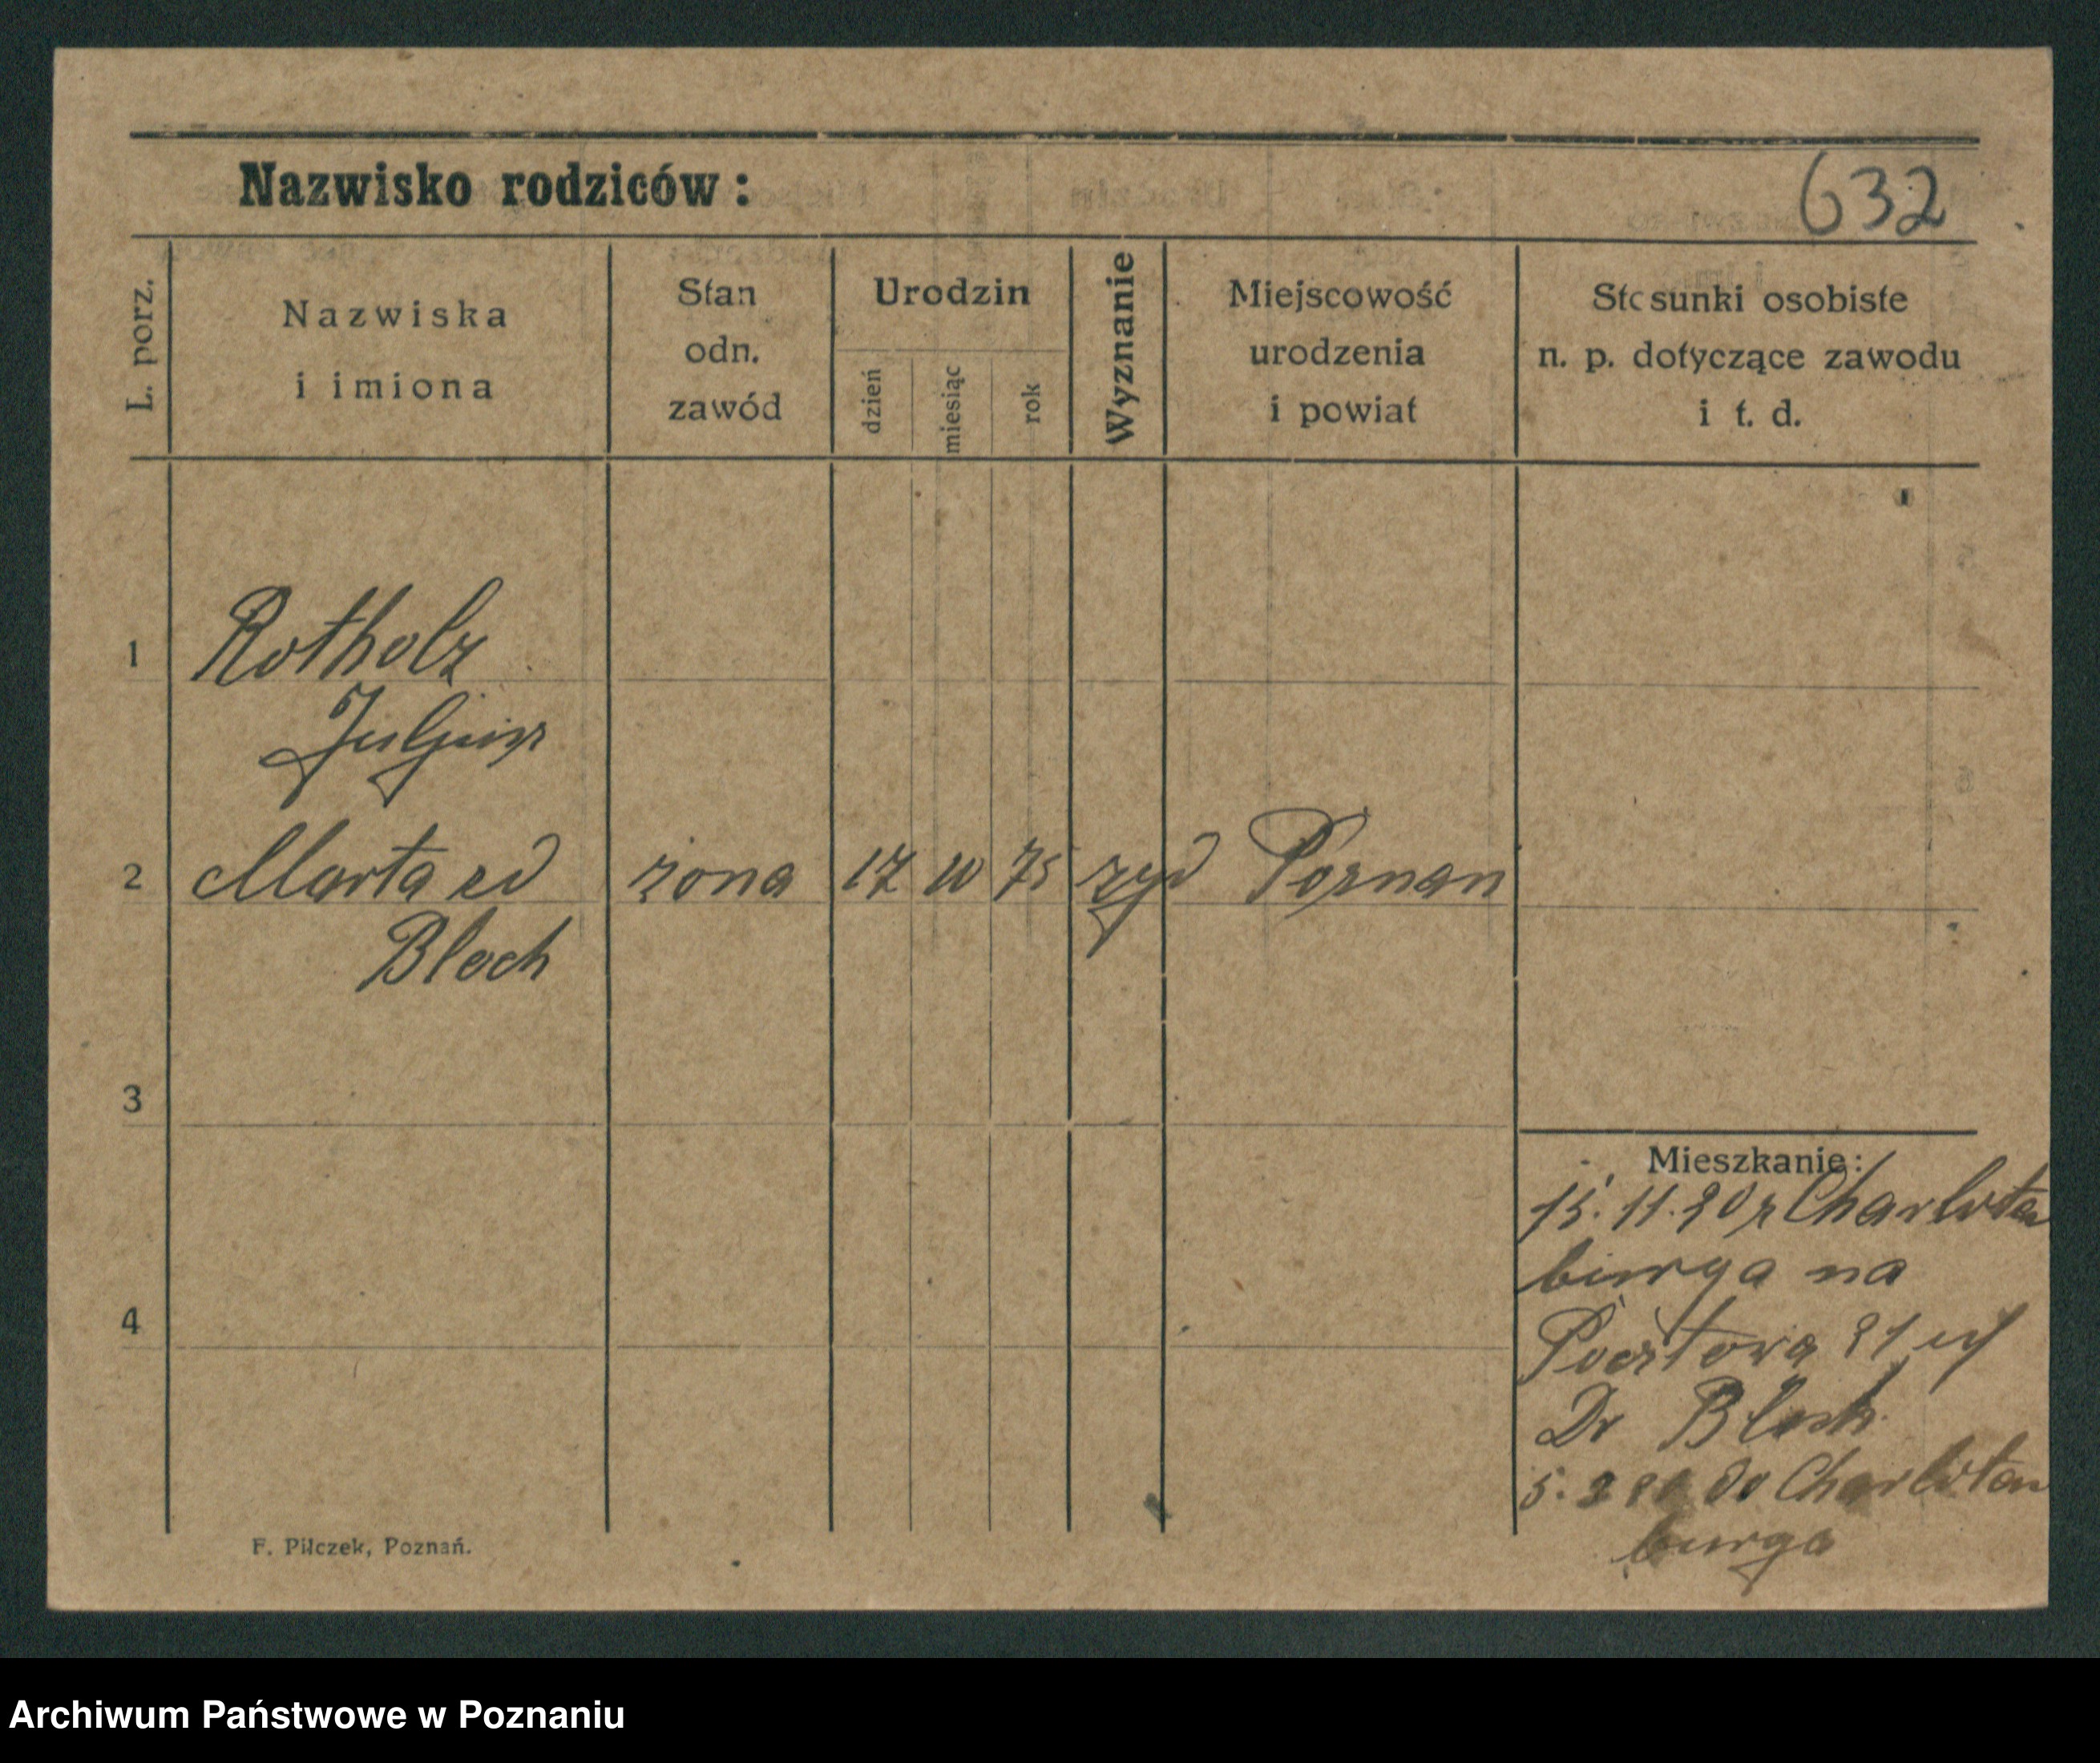 Nazwisko rodziców:
632
L. porz.
Nazwiska
i imiona
Stan
odn.
zawód
Urodzin
dzień
miesiąc
rok
Wyznanie
Miejscowość
urodzenia
i powiat
Stosunki osobiste
n. p. dotyczące zawodu
i t. d.
1 Rotholz
Juljusz
2 Marta żona 17 10 75 żyd Poznan
Bloch
3
4
Mieszkanie:
15. 11. 20 z Charloten
burga na
Pocztowa 21
Dr Bloch
5. do Charloten
burga
F. Pilczek, Poznań.
Archiwum Państwowe w Poznaniu